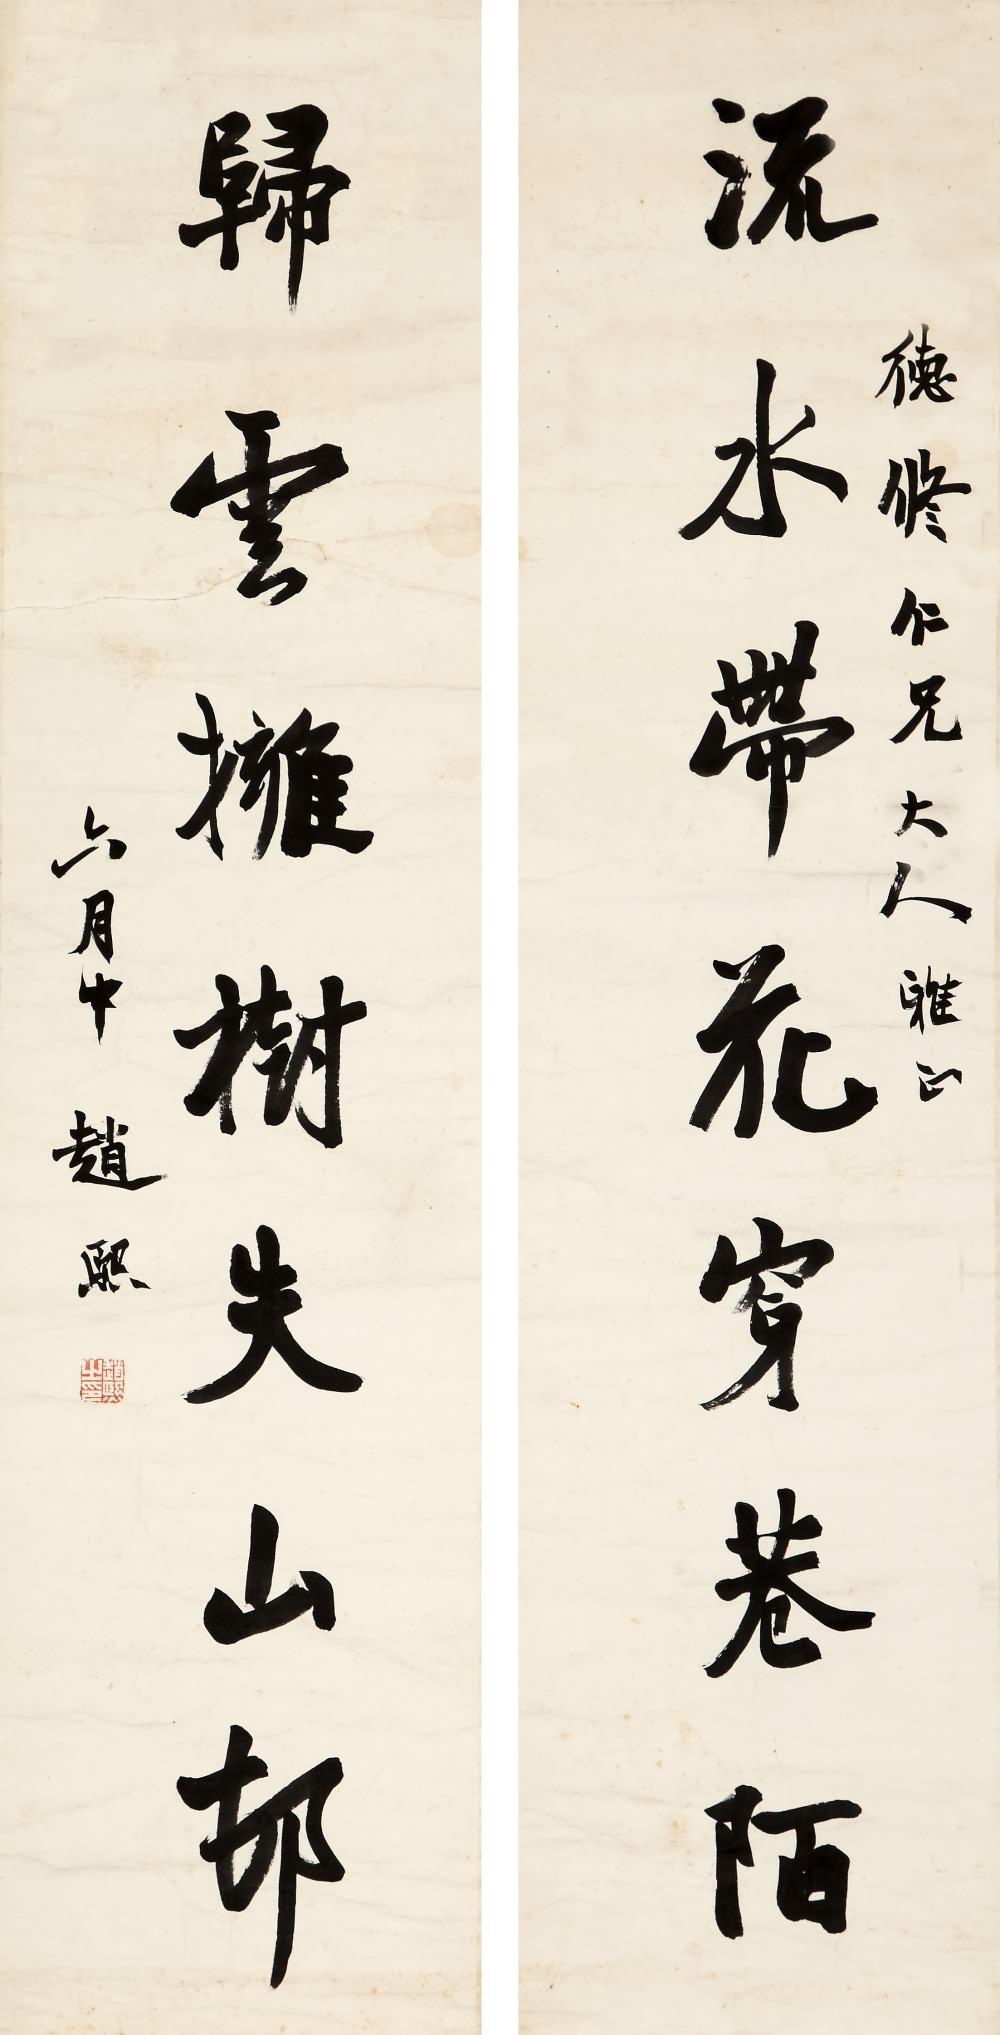 德修仁兄大人雅正
流水帶花穿巷陌
歸雲擁樹失山邨
六月中 趙熙
趙熙之印